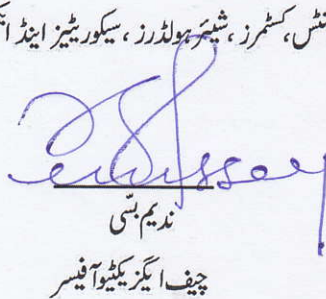 نٹس، کسٹمرز، شیئر ہولڈرز، سیکوریٹیز اینڈ ایک
ندیم بٹی
چیف ایگزیکٹیو آفیسر